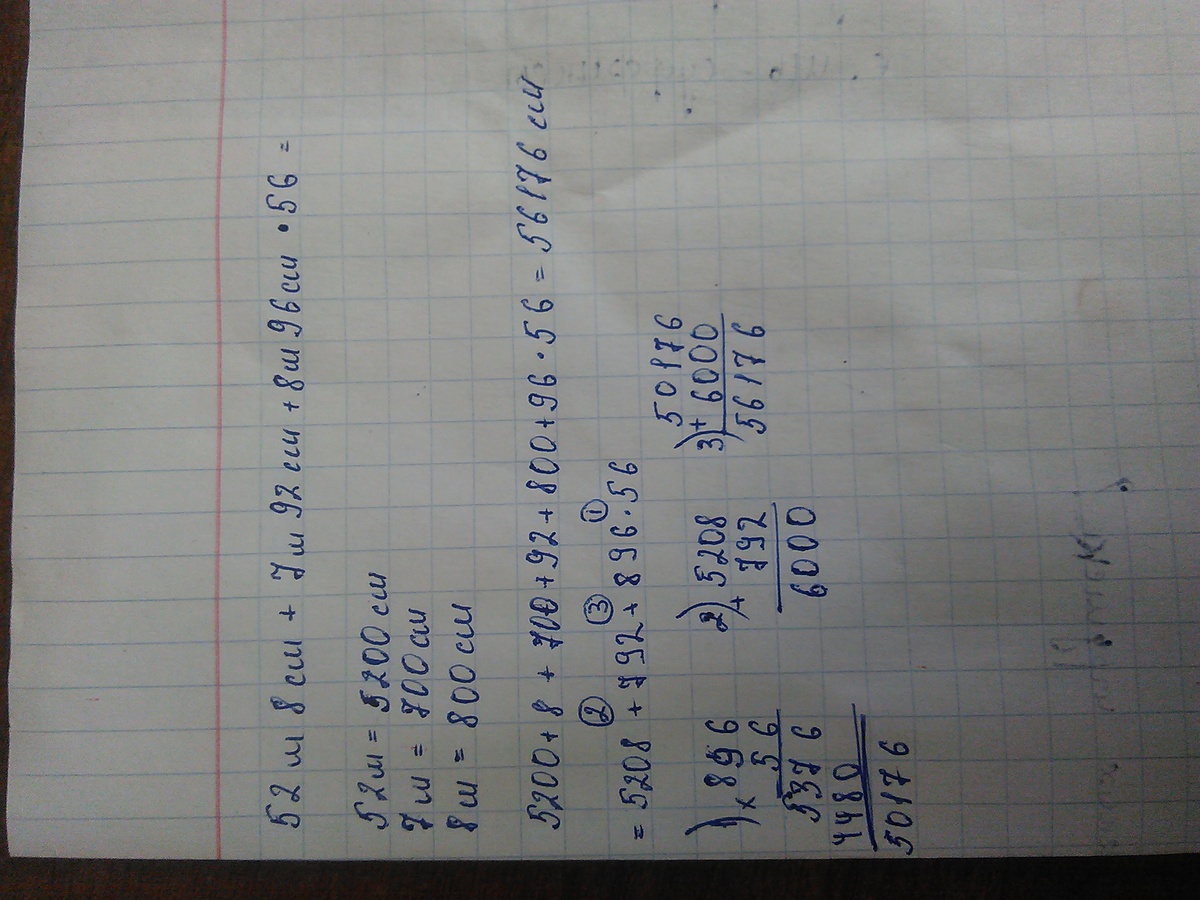 52 м 8 см + 7 м 92 см + 8 м 96 см · 56 =
52 м = 5200 см
7 м = 700 см
8 м = 800 см
5200 + 8 + 700 + 92 + 800 + 96 · 56 = 56176 см
② ③ ①
= 5208 + 792 + 896 · 56
1) × 896
56
5376
4480
50176
2) + 5208
792
6000
3) + 50176
6000
56176